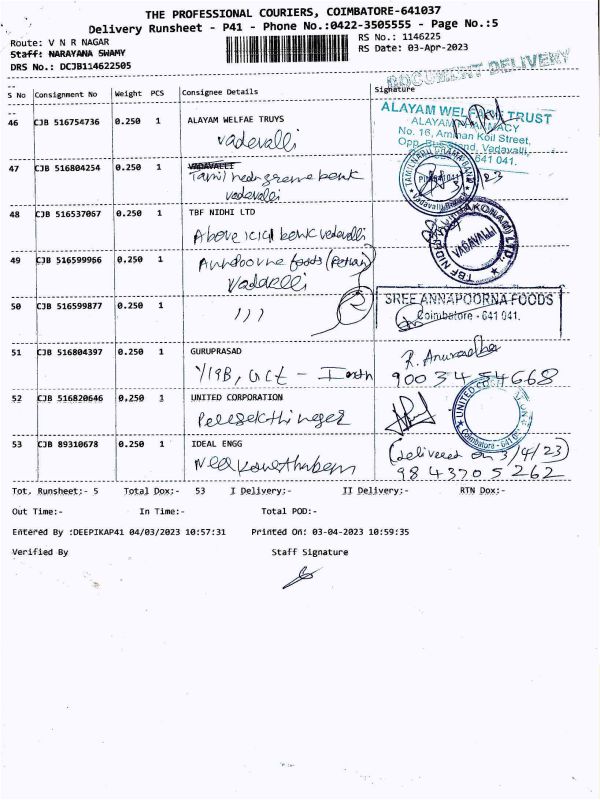 THE PROFESSIONAL COURIERS, COIMBATORE-641037
Delivery Runsheet - P41 - Phone No.:0422-3505555 - Page No.:5
Route: V N R NAGAR
RS No.: 1146225
Staff: NARAYANA SWAMY
RS Date: 03-Apr-2023
DRS No.: DCJB114622505
DOCUMENT DELIVERY
S No Consignment No Weight PCS Consignee Details Signature
46 CJB 516754736 0.250 1 ALAYAM WELFAE TRUYS
Vadavalli
ALAYAM WELFARE TRUST
ALAYAM PHARMACY
No. 16, Amman Koil Street,
Opp. Bus Stand, Vadavalli,
641 041.
47 CJB 516804254 0.250 1 VADAVALLI
bank
vadavalli
TAMILNADU GRAMA BANK
Vadavalli Branch
23
48 CJB 516537067 0.250 1 TBF NIDHI LTD
Above icici bank vadavalli
VADAVALLI
TBF NIDHI LTD.
49 CJB 516599966 0.250 1
Annapoorna foods
50 CJB 516599877 0.250 1
SREE ANNAPOORNA FOODS
Coimbatore - 641 041.
51 CJB 516804397 0.250 1 GURUPRASAD
Y19B,
R. Anuradha
90034 54668
52 CJB 516820646 0.250 1 UNITED CORPORATION
UNITED
Coimbatore - 641
53 CJB 89310678 0.250 1 IDEAL ENGG
(delivered on 3/4/23)
9843705262
Tot. Runsheet:- 5 Total Dox:- 53 I Delivery:- II Delivery:- RTN Dox:-
Out Time:- In Time:- Total POD:-
Entered By :DEEPIKAP41 04/03/2023 10:57:31 Printed On: 03-04-2023 10:59:35
Verified By Staff Signature